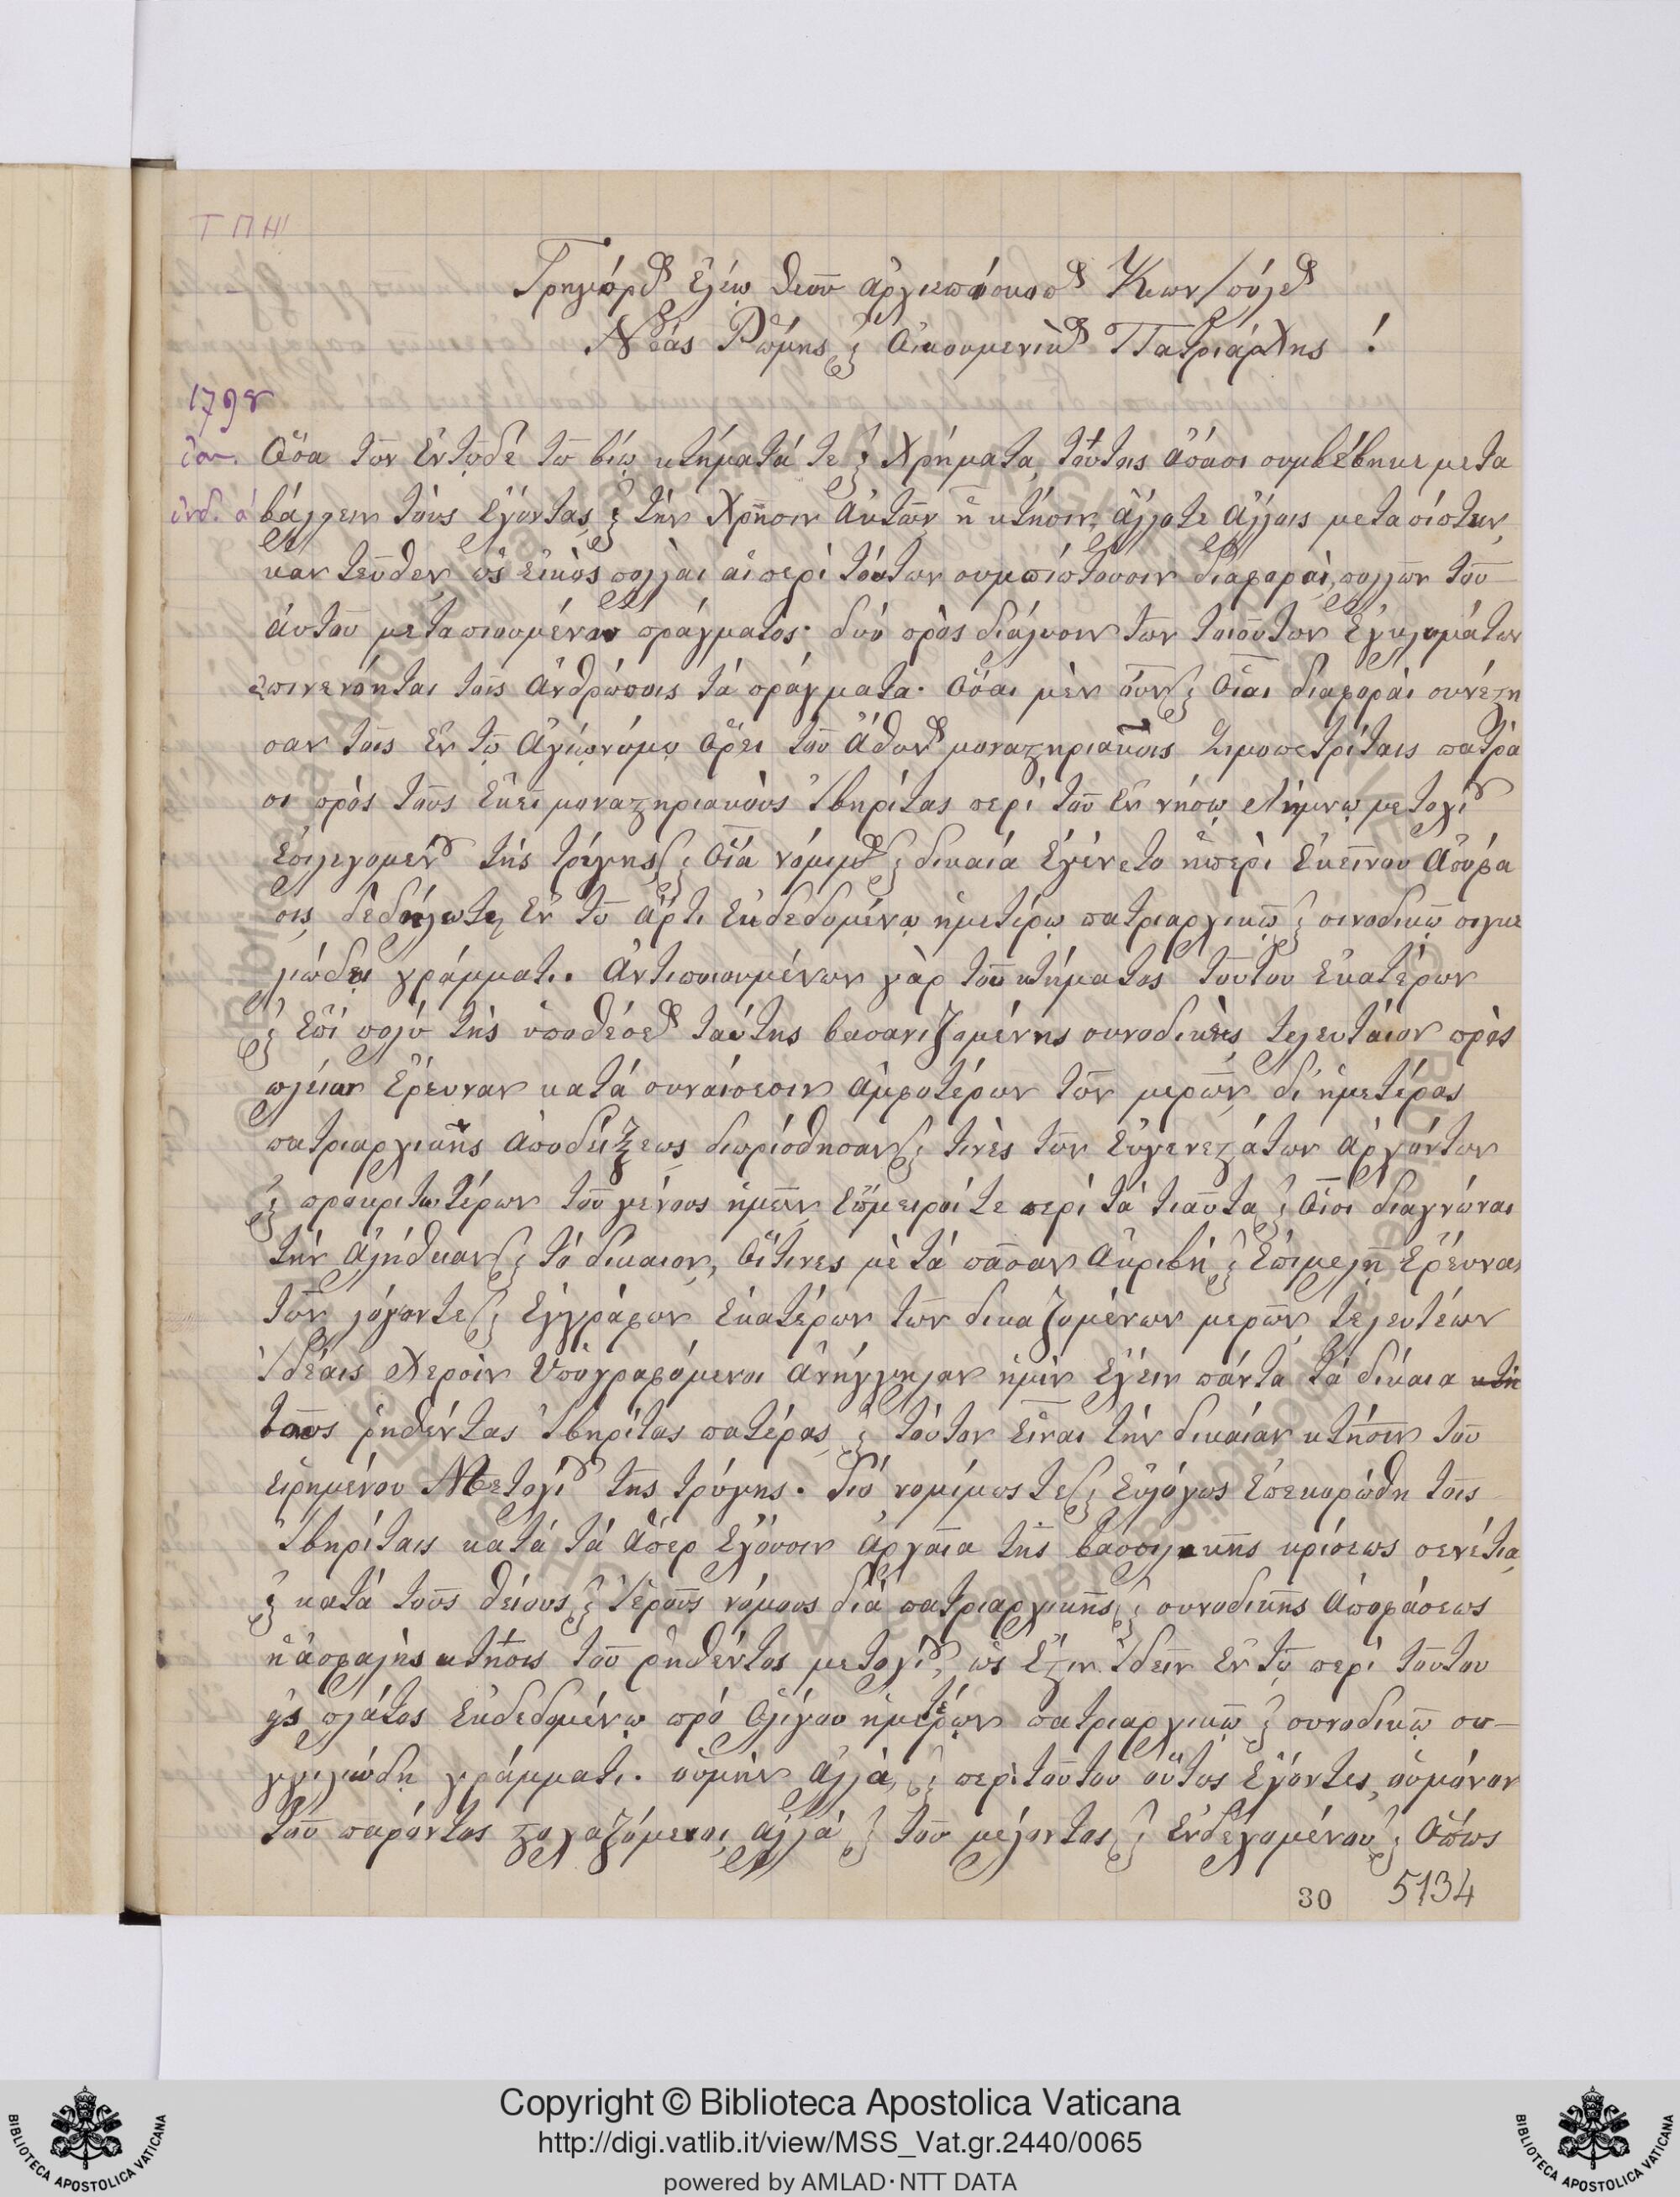 ΤΠΗ
Γρηγόριος ἐλέῳ Θεοῦ ἀρχιεπίσκοπος Κων/πόλεως
Νέας Ῥώμης ϗ Οἰκουμενικὸς Πατριάρχης !
1798
ἰαν. Ὅσα τῶν ἐν τῷδε τῷ βίῳ κτήματά τε ϗ χρήματα, τούτοις ἅπασι συμβέβηκε μετα
ἰνδ. ά βάλλειν τοὺς ἔχοντας ϗ τὴν χρῆσιν αὐτῶν ἢ κτῆσιν, ἄλλοτε ἄλλοις μεταπίπτειν,
καντεῦθεν ὡς εἰκὸς πολλαὶ αἱ περὶ τούτων συμπίπτουσιν διαφοραὶ, πολλῶν τοῦ
ἀυτοῦ μεταποιουμένων πράγματος· δύο πρὸς διάλυσιν τῶν τοιούτων ἐγκλημάτων
ἐπινενόηται τοῖς ἀνθρώποις τὰ πράγματα. Ὅσαι μὲν οὖν ϗ οἷαι διαφοραὶ συνέστη
σαν τοῖς ἐν τῷ ἁγιωνύμῳ ὄρει τοῦ Ἄθωνος μοναστηριακοῖς Σιμοπετρίταις πατρά
σι πρὸς τοὺς ἐκεῖ μοναστηριακοὺς Ἰβηρίτας περὶ τοῦ ἐν νήσῳ Λήμνῳ μετοχίου
ἐπιλεγομένου τῆς τρύγης ϗ οἷα νόμιμος ϗ δικαία ἐγένετο ἡ περὶ ἐκείνου ἀπόφα
σις δεδήλωται ἐν τῷ ἄρτι ἐκδεδομένῳ ἡμετέρῳ πατριαρχικῷ ϗ συνοδικῷ σιγιλ
λιώδει γράμματι. Ἀντιποιουμένων γὰρ τοῦ κτήματος τούτου ἑκατέρων
ϗ ἐπὶ πολύ τῆς ὑποθέσεως ταύτης βασανιζομένης συνοδικῶς, τελευταῖον πρὸς
πλείω ἔρευναν κατὰ συναίνεσιν ἀμφοτέρων τῶν μερῶν, δι' ἡμετέρας
πατριαρχικῆς ἀποδείξεως διωρίσθησαν ϗ τινὲς τῶν εὐγενεστάτων ἀρχόντων
ϗ προκριτωτέρων τοῦ γένους ἡμῶν ἔμπειροί τε περὶ τὰ τιαῦτα ϗ οἷοι διαγνῶναι
τὴν ἀλήθειαν ϗ τὸ δίκαιον, οἵτινες μὲ τὰ πᾶσαν ἀκριβῆ ϗ ἐπιμελῆ ἔρευναν
τῶν λόγων τε ϗ ἐγγράφων ἑκατέρων τῶν δικαζομένων μερῶν, τελευτέων
ἰδέαις χερσὶν ὑπογραφόμενοι ἀνήγγειλαν ἡμῖν ἔχειν πάντα τὰ δίκαια
τοὺς ῥηθέντας Ἰβηρίτας πατέρας, ϗ τούτων εἶναι τὴν δικαίαν κτῆσιν τοῦ
εἰρημένου Μετοχίου τῆς τρύγης. διὸ νομίμως τε ϗ εὐλόγως ἐπεκυρώθη τοῖς
Ἰβηρίταις κατὰ τὰ ἅπερ ἔχουσιν ἀρχαῖα τῆς βασιλικῆς κρίσεως σενέτια,
ϗ κατὰ τοὺς θείους ϗ ἱεροὺς νόμους διὰ πατριαρχικῆς ϗ συνοδικῆς ἀποφάσεως
ἡ ἀσφαλὴς κτῆσις τοῦ ῥηθέντος μετοχίου, ὡς ἔστιν ἰδεῖν ἐν τῷ περὶ τούτου
εἰς πλάτος ἐκδεδομένῳ πρὸ ὀλίγου ἡμετέρῳ πατριαρχικῷ ϗ συνοδικῷ σι-
γγιλιώδη γράμματι. οὐμὴν ἀλλὰ, ϗ περὶ τούτου οὕτως ἔχοντες, οὐμόνον
τοῦ παρόντος στοχαζόμενοι, ἀλλὰ ϗ τοῦ μέλοντος ϗ ἐνδεχομένου ϗ ὅπως
30 5134
Copyright © Biblioteca Apostolica Vaticana
http://digi.vatlib.it/view/MSS_Vat.gr.2440/0065
powered by AMLAD·NTT DATA
BIBLIOTECA APOSTOLICA VATICANA
BIBLIOTECA APOSTOLICA VATICANA